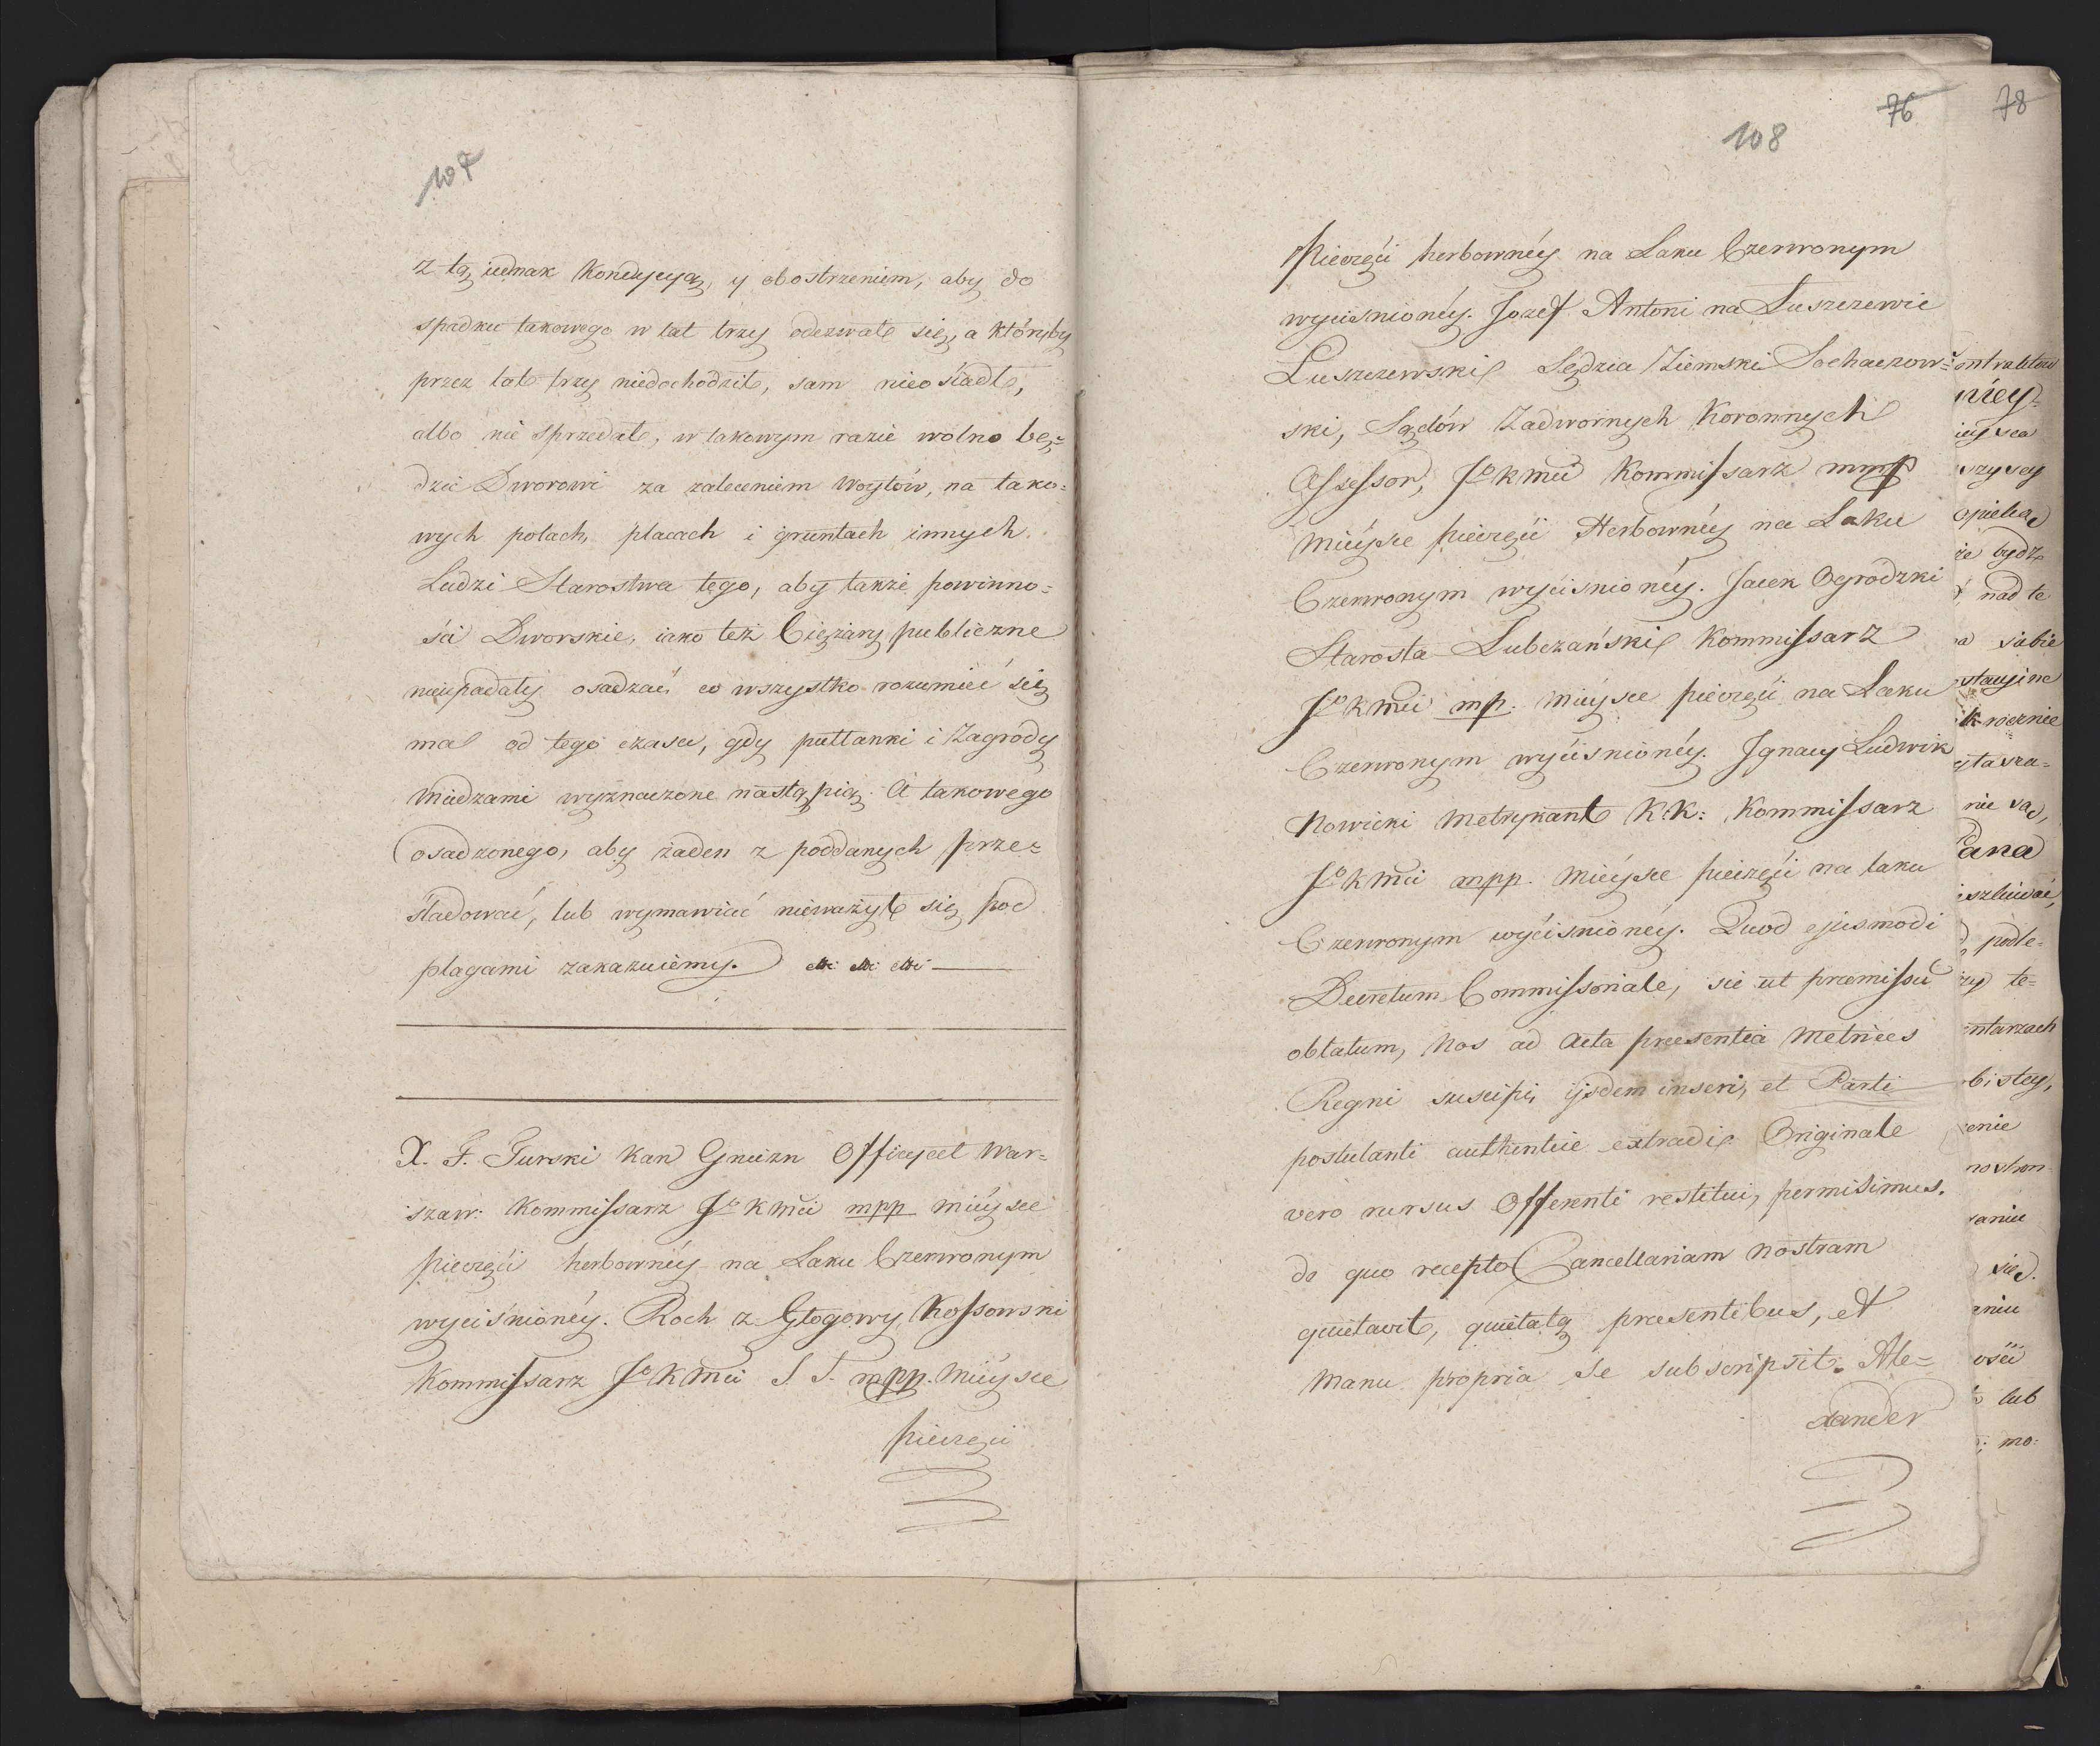 107
z tą iednak Kondycyą, y obostrzeniem, aby do
spadku takowego w lat trzy odezwał się, a któryby
przez lat trzy niedochodził, sam nieosiadł,
albo nie sprzedał, w takowym razie wolno bę=
dzie Dworowi za zaleceniem Woytów, na tako=
wych polach, placach i gruntach innych
Ludzi Starostwa tego, aby także powinno=
ści Dworskie, iako też Ciężary publiczne
nieupadały osadzać, co wszystko rozumieć się
ma od tego czasu, gdy pułłanki i Zagrody
Miedzami wyznaczone nastąpią. A takowego
osadzonego, aby żaden z poddanych prze=
śladować, lub wymawiać nieważył się pod
plagami zakazuiemy.
X. F. Turski Kan Gniezn Officyał War=
szaw: Kommissarz Jo K Mci mpp Mieysce
pieczęci herbownéy na Laku Czerwonym
wyciśnionéy. Roch z Głogowy Kossowski
Kommissarz Jo K Mci S. S. mpp. Mieysce
pieczęci
108
76
78
Pieczęci herbownéy na Laku Czerwonym
wyciśnionéy. Jozef Antoni na Luszczewie
Luszczewski Sędzia Ziemski Sochaczow=
ski, Sądów Zadwornych Koronnych
Assessor, Jo K Mci Kommissarz mmp
Mieysce pieczęci Herbownéy na Laku
Czerwonym wyciśnionéy. Jacek Ogrodzki
Starosta Lubczański Kommissarz
Jo K Mci mp. Mieysce pieczęci na Laku
Czerwonym wyciśnionéy. Ignacy Ludwik
Nowicki Metrykant K.K: Kommissarz
Jo K Mci mpp. Mieysce pieczęci na laku
Czerwonym wyciśnionéy. Quod ejusmodi
Decretum Commissoriale, sic ut præmissu
oblatum, Nos ad Acta præsentia Metrices
Regni suscipi, ijsdem inseri, et Parti
postulanti authentice extradi Originale
vero rursus Offerenti restitui, permisimus.
de quo recepto Cancellariam nostram
quietavit, quietatq præsentibus, et
Manu propria se subscripsit. Ale=
xander
niey=
nad te
sobie
nie są,
Pana
podle=
te=
ntarzach
lub
mo: